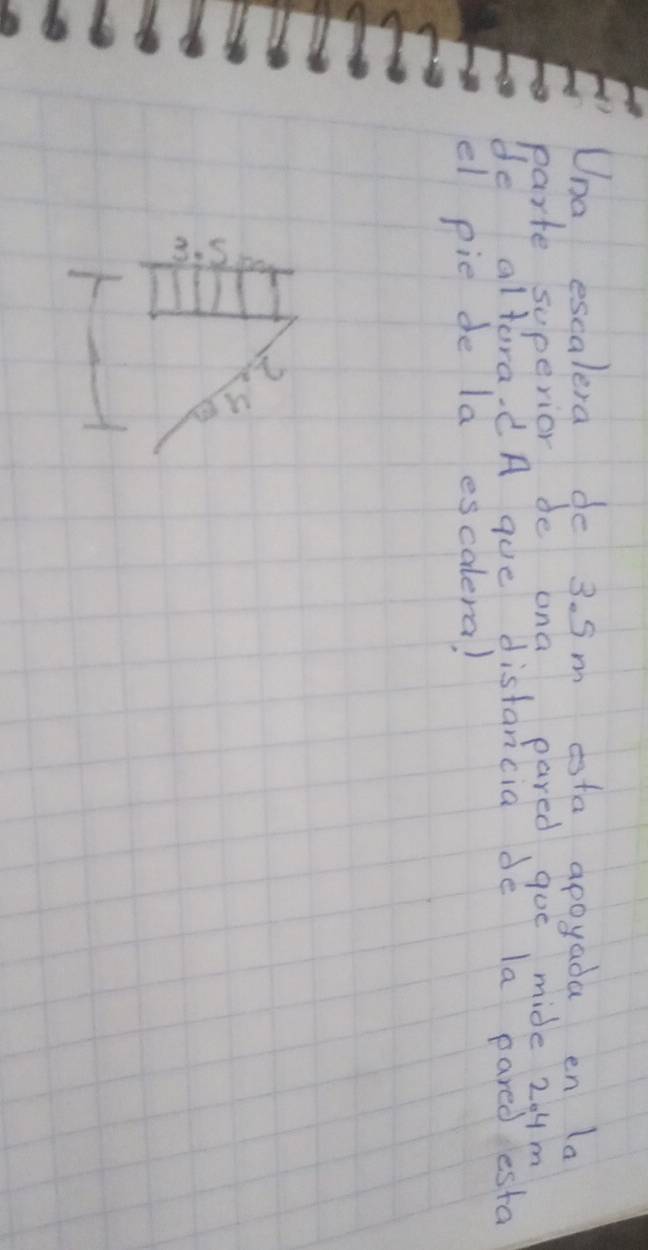 Una escalera de 3.5m esta apoyada en la
parte superior de una pared que mide 2.4m
de altura.¿A que distancia de la pared esta
el pie de la escalera?
3.5m